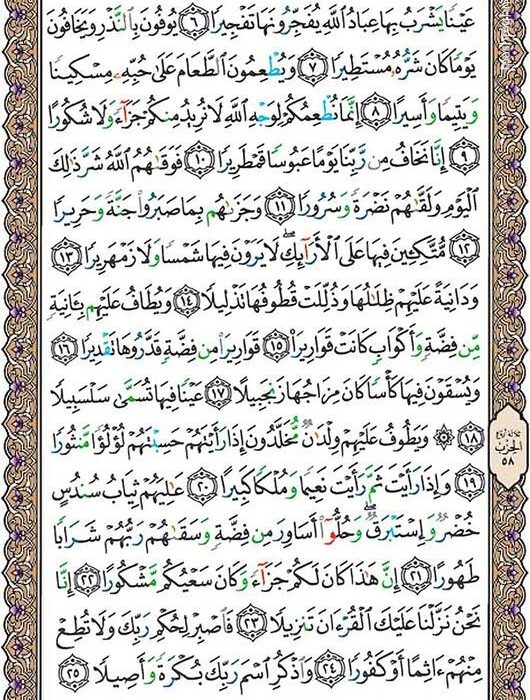 عَيْنًا يَشْرَبُ بِهَا عِبَادُ اللَّهِ يُفَجِّرُونَهَا تَفْجِيرًا ٦ يُوفُونَ بِالنَّذْرِ وَيَخَافُونَ
يَوْمًا كَانَ شَرُّهُ مُسْتَطِيرًا ٧ وَيُطْعِمُونَ الطَّعَامَ عَلَىٰ حُبِّهِ مِسْكِينًا
وَيَتِيمًا وَأَسِيرًا ٨ إِنَّمَا نُطْعِمُكُمْ لِوَجْهِ اللَّهِ لَا نُرِيدُ مِنكُمْ جَزَاءً وَلَا شُكُورًا
٩ إِنَّا نَخَافُ مِن رَّبِّنَا يَوْمًا عَبُوسًا قَمْطَرِيرًا ١٠ فَوَقَاهُمُ اللَّهُ شَرَّ ذَٰلِكَ
الْيَوْمِ وَلَقَّاهُمْ نَضْرَةً وَسُرُورًا ١١ وَجَزَاهُم بِمَا صَبَرُوا جَنَّةً وَحَرِيرًا
١٢ مُّتَّكِئِينَ فِيهَا عَلَى الْأَرَائِكِ ۖ لَا يَرَوْنَ فِيهَا شَمْسًا وَلَا زَمْهَرِيرًا ١٣
وَدَانِيَةً عَلَيْهِمْ ظِلَالُهَا وَذُلِّلَتْ قُطُوفُهَا تَذْلِيلًا ١٤ وَيُطَافُ عَلَيْهِم بِآنِيَةٍ
مِّن فِضَّةٍ وَأَكْوَابٍ كَانَتْ قَوَارِيرَا ١٥ قَوَارِيرَا مِن فِضَّةٍ قَدَّرُوهَا تَقْدِيرًا ١٦
وَيُسْقَوْنَ فِيهَا كَأْسًا كَانَ مِزَاجُهَا زَنجَبِيلًا ١٧ عَيْنًا فِيهَا تُسَمَّىٰ سَلْسَبِيلًا
١٨ ۞ وَيَطُوفُ عَلَيْهِمْ وِلْدَانٌ مُّخَلَّدُونَ إِذَا رَأَيْتَهُمْ حَسِبْتَهُمْ لُؤْلُؤًا مَّنثُورًا
ثلاثة أرباع
الحزب
٥٨
١٩ وَإِذَا رَأَيْتَ ثَمَّ رَأَيْتَ نَعِيمًا وَمُلْكًا كَبِيرًا ٢٠ عَالِيَهُمْ ثِيَابُ سُندُسٍ
خُضْرٌ وَإِسْتَبْرَقٌ ۖ وَحُلُّوا أَسَاوِرَ مِن فِضَّةٍ وَسَقَاهُمْ رَبُّهُمْ شَرَابًا
طَهُورًا ٢١ إِنَّ هَٰذَا كَانَ لَكُمْ جَزَاءً وَكَانَ سَعْيُكُم مَّشْكُورًا ٢٢ إِنَّا
نَحْنُ نَزَّلْنَا عَلَيْكَ الْقُرْآنَ تَنزِيلًا ٢٣ فَاصْبِرْ لِحُكْمِ رَبِّكَ وَلَا تُطِعْ
مِنْهُمْ آثِمًا أَوْ كَفُورًا ٢٤ وَاذْكُرِ اسْمَ رَبِّكَ بُكْرَةً وَأَصِيلًا ٢٥